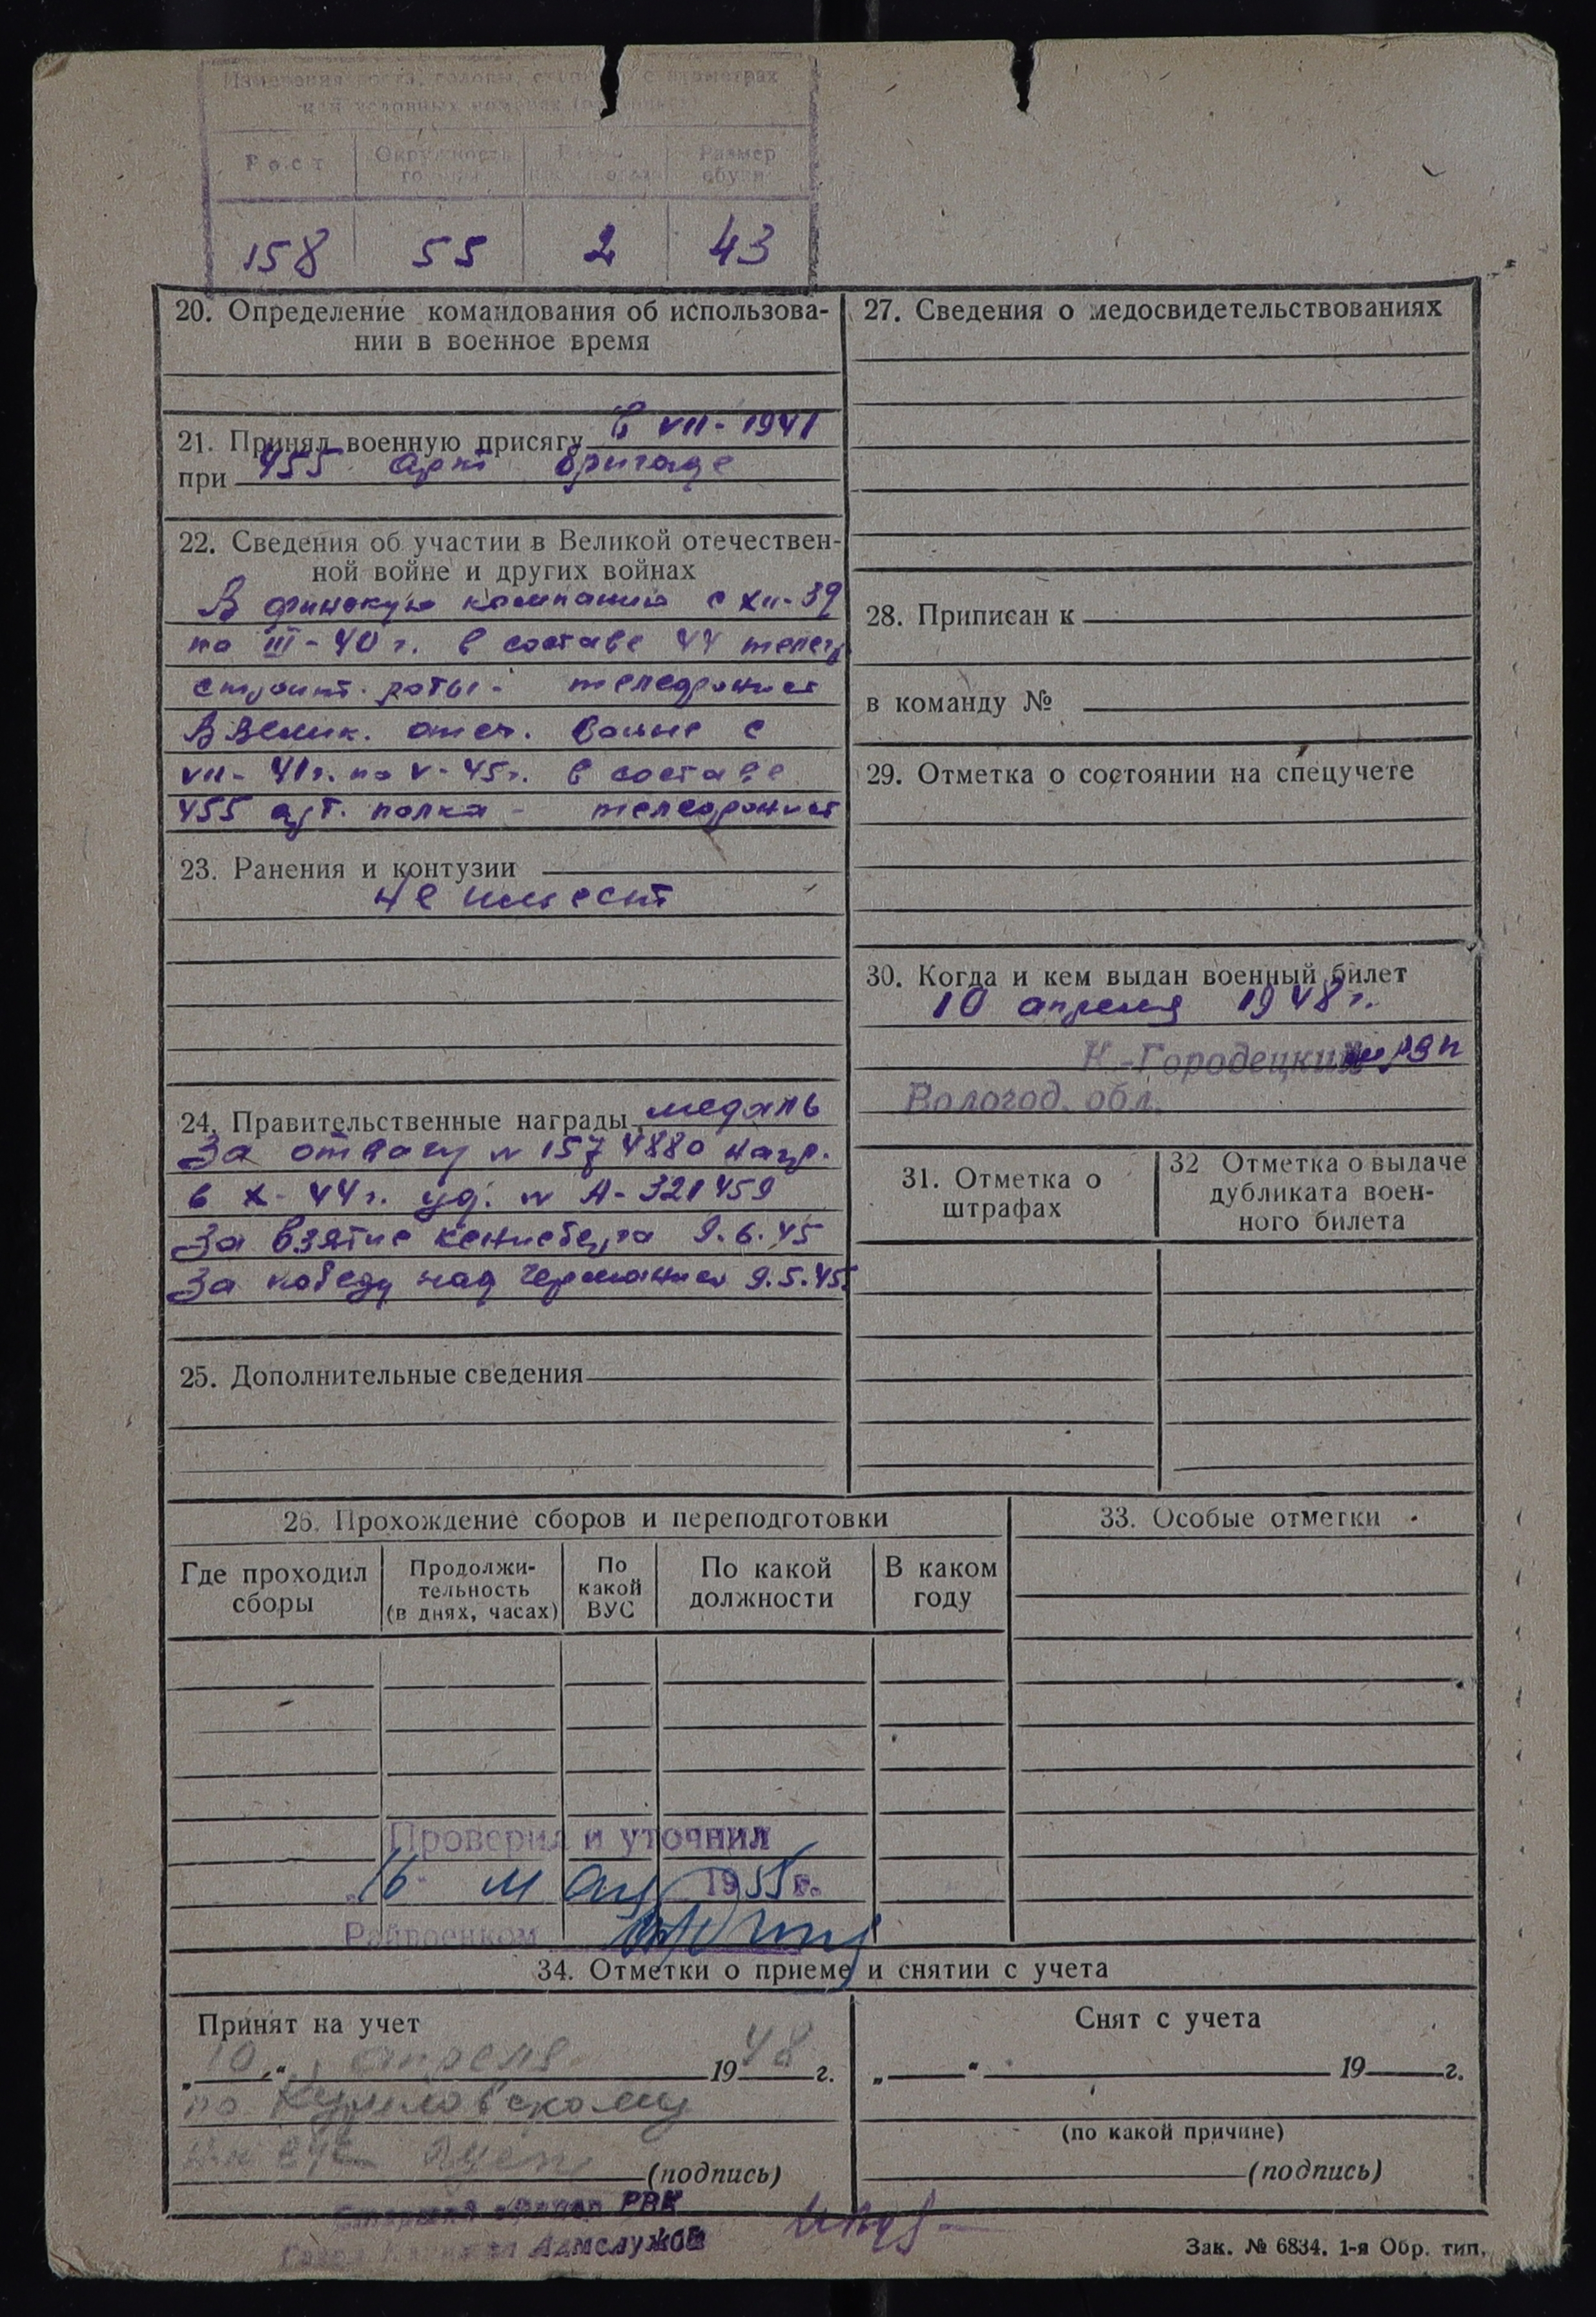 Измерения роста, головы, в сантиметрах
или условных номерах
Рост Окружность головы Размер обуви
158 55 2 43
20. Определение командования об использова-
нии в военное время
21. Принял военную присягу в VII - 1941
при 455 арт бригаде
22. Сведения об участии в Великой отечествен-
ной войне и других войнах
В финскую компанию с XII-39
по III-40 г. в составе 44 телегр
строит. роты - телефонист
В Велик. отеч. войне с
VII-41 г. по V-45 г. в составе
455 арт. полка - телефонист
23. Ранения и контузии
не имеет
24. Правительственные награды медаль
За отвагу № 1574880 нагр.
в X-44 г. уд. № А-321459
За взятие кенисберга 9.6.45
За победу над Германией 9.5.45
25. Дополнительные сведения
27. Сведения о медосвидетельствованиях
28. Приписан к
в команду №
29. Отметка о состоянии на спецучете
30. Когда и кем выдан военный билет
10 апреля 1948 г.
К.-Городецким РВК
Вологод. обл.
31. Отметка о
штрафах
32 Отметка о выдаче
дубликата воен-
ного билета
26. Прохождение сборов и переподготовки
Где проходил
сборы
Продолжи-
тельность
(в днях, часах)
По
какой
ВУС
По какой
должности
В каком
году
33. Особые отметки
Проверил и уточнил
„16" мая 1955 г.
Райвоенком
34. Отметки о приеме и снятии с учета
Принят на учет
„10" апреля 1948 г.
по Куриловскому
(подпись)
РВК
Адмслужбы
Снят с учета
„ " 19 г.
(по какой причине)
(подпись)
Зак. № 6834. 1-я Обр. тип.